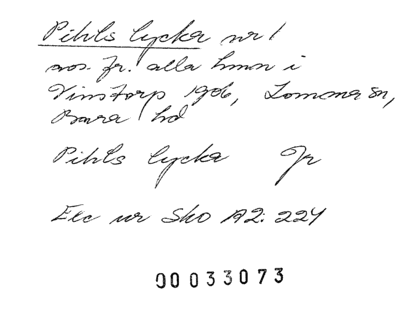 Pihls lycka nr 1
avs. fr. alla hmn i
Vinstorp 1906, Lomma sn,
Bara hd
Pihls lycka Jr
Exc ur Sko A2: 224
00033073